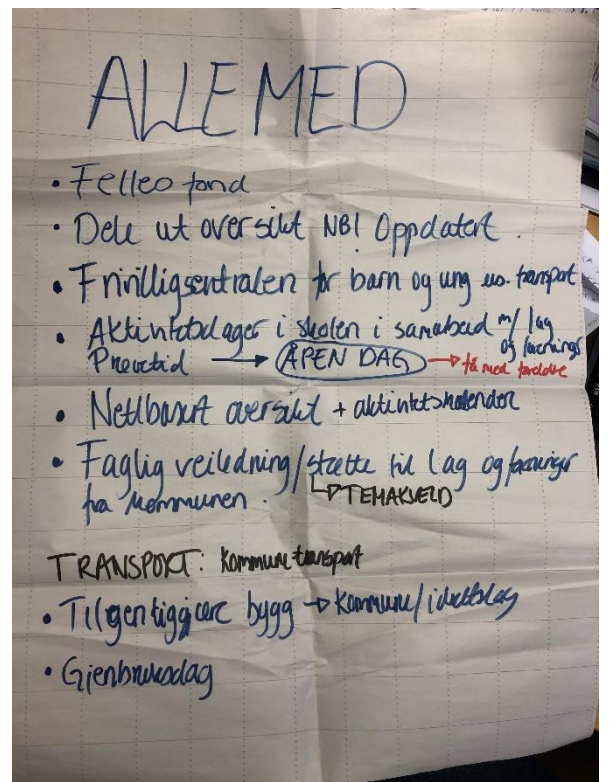 ALLE MED
• Felles fond
• Dele ut oversikt NB! Oppdatert.
• Frivilligsentralen for barn og ung eks. transport
• Aktivitetsdager i skolen i samarbeid m/ lag og forenings
Prøvetid → ÅPEN DAG → få med foreldre
• Nettbasert oversikt + aktivitetskalender
• Faglig veiledning/støtte til lag og foreninger
fra kommunen.
↳ TEMAKVELD
TRANSPORT: Kommunetransport
• Tilgjengiggjøre bygg → kommune/idrettslag
• Gjenbruksdag